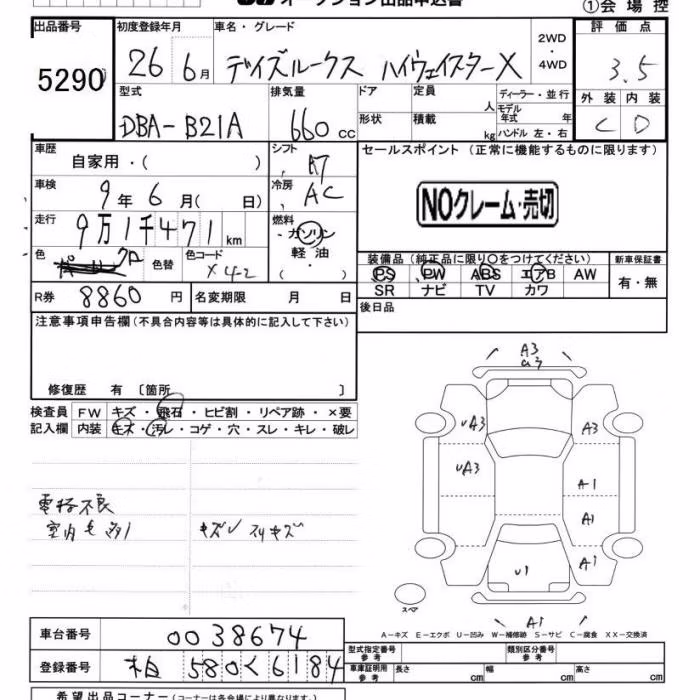 オークション出品申込書
①会場控
出品番号 初度登録年月 車名・グレード 2WD・4WD 評価点
5290 26 6月 デイズルークス ハイウェイスターX 3.5
型式 排気量 ドア 定員 人 ディーラー・並行 外装 内装
DBA-B21A 660cc 形状 積載 kg モデル年式 年 ハンドル 左・右 C D
車歴 シフト セールスポイント (正常に機能するものに限ります)
自家用・( ) AT
車検 冷房 NOクレーム・売切
9年6月( 日) AC
走行 燃料
9万1千471km ガソリン
色 クロ 色替 色コード X42 軽油・( )
装備品(純正品に限り〇をつけてください) 新車保証書
PS PW ABS エアB AW 有・無
SR ナビ TV カワ
R券 8860円 名変期限 月 日 後日品
注意事項申告欄(不具合内容等は具体的に記入して下さい)
修復歴 有〔箇所 〕
検査員 FW キズ・飛石・ヒビ割・リペア跡・×要
記入欄 内装 キズ・汚レ・コゲ・穴・スレ・キレ・破レ
電格不良
室内毛多し キズ スリキズ
A3
UA3 A3
UA3 A1
A1
U1
スペア A1
A-キズ E-エクボ U-凹み W-補修跡 S-サビ C-腐食 XX-交換済
車台番号 0038674 型式指定番号 参考 類別区分番号 参考
登録番号 柏 580く6184 車庫証明用 参考 長さ cm 幅 cm 高さ cm
希望出品コーナー(コーナーは各会場により異なります)